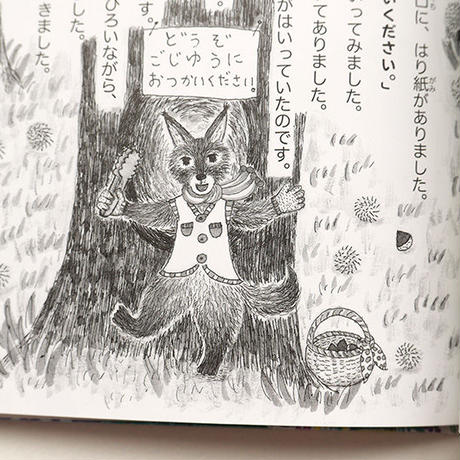 口に、はり紙がありました。
いください。」
ってみました。
てありました。
がはいっていたのです。
どうぞ
ごじゆうに
おつかいください。
す。
ひろいながら、
した。
きました。